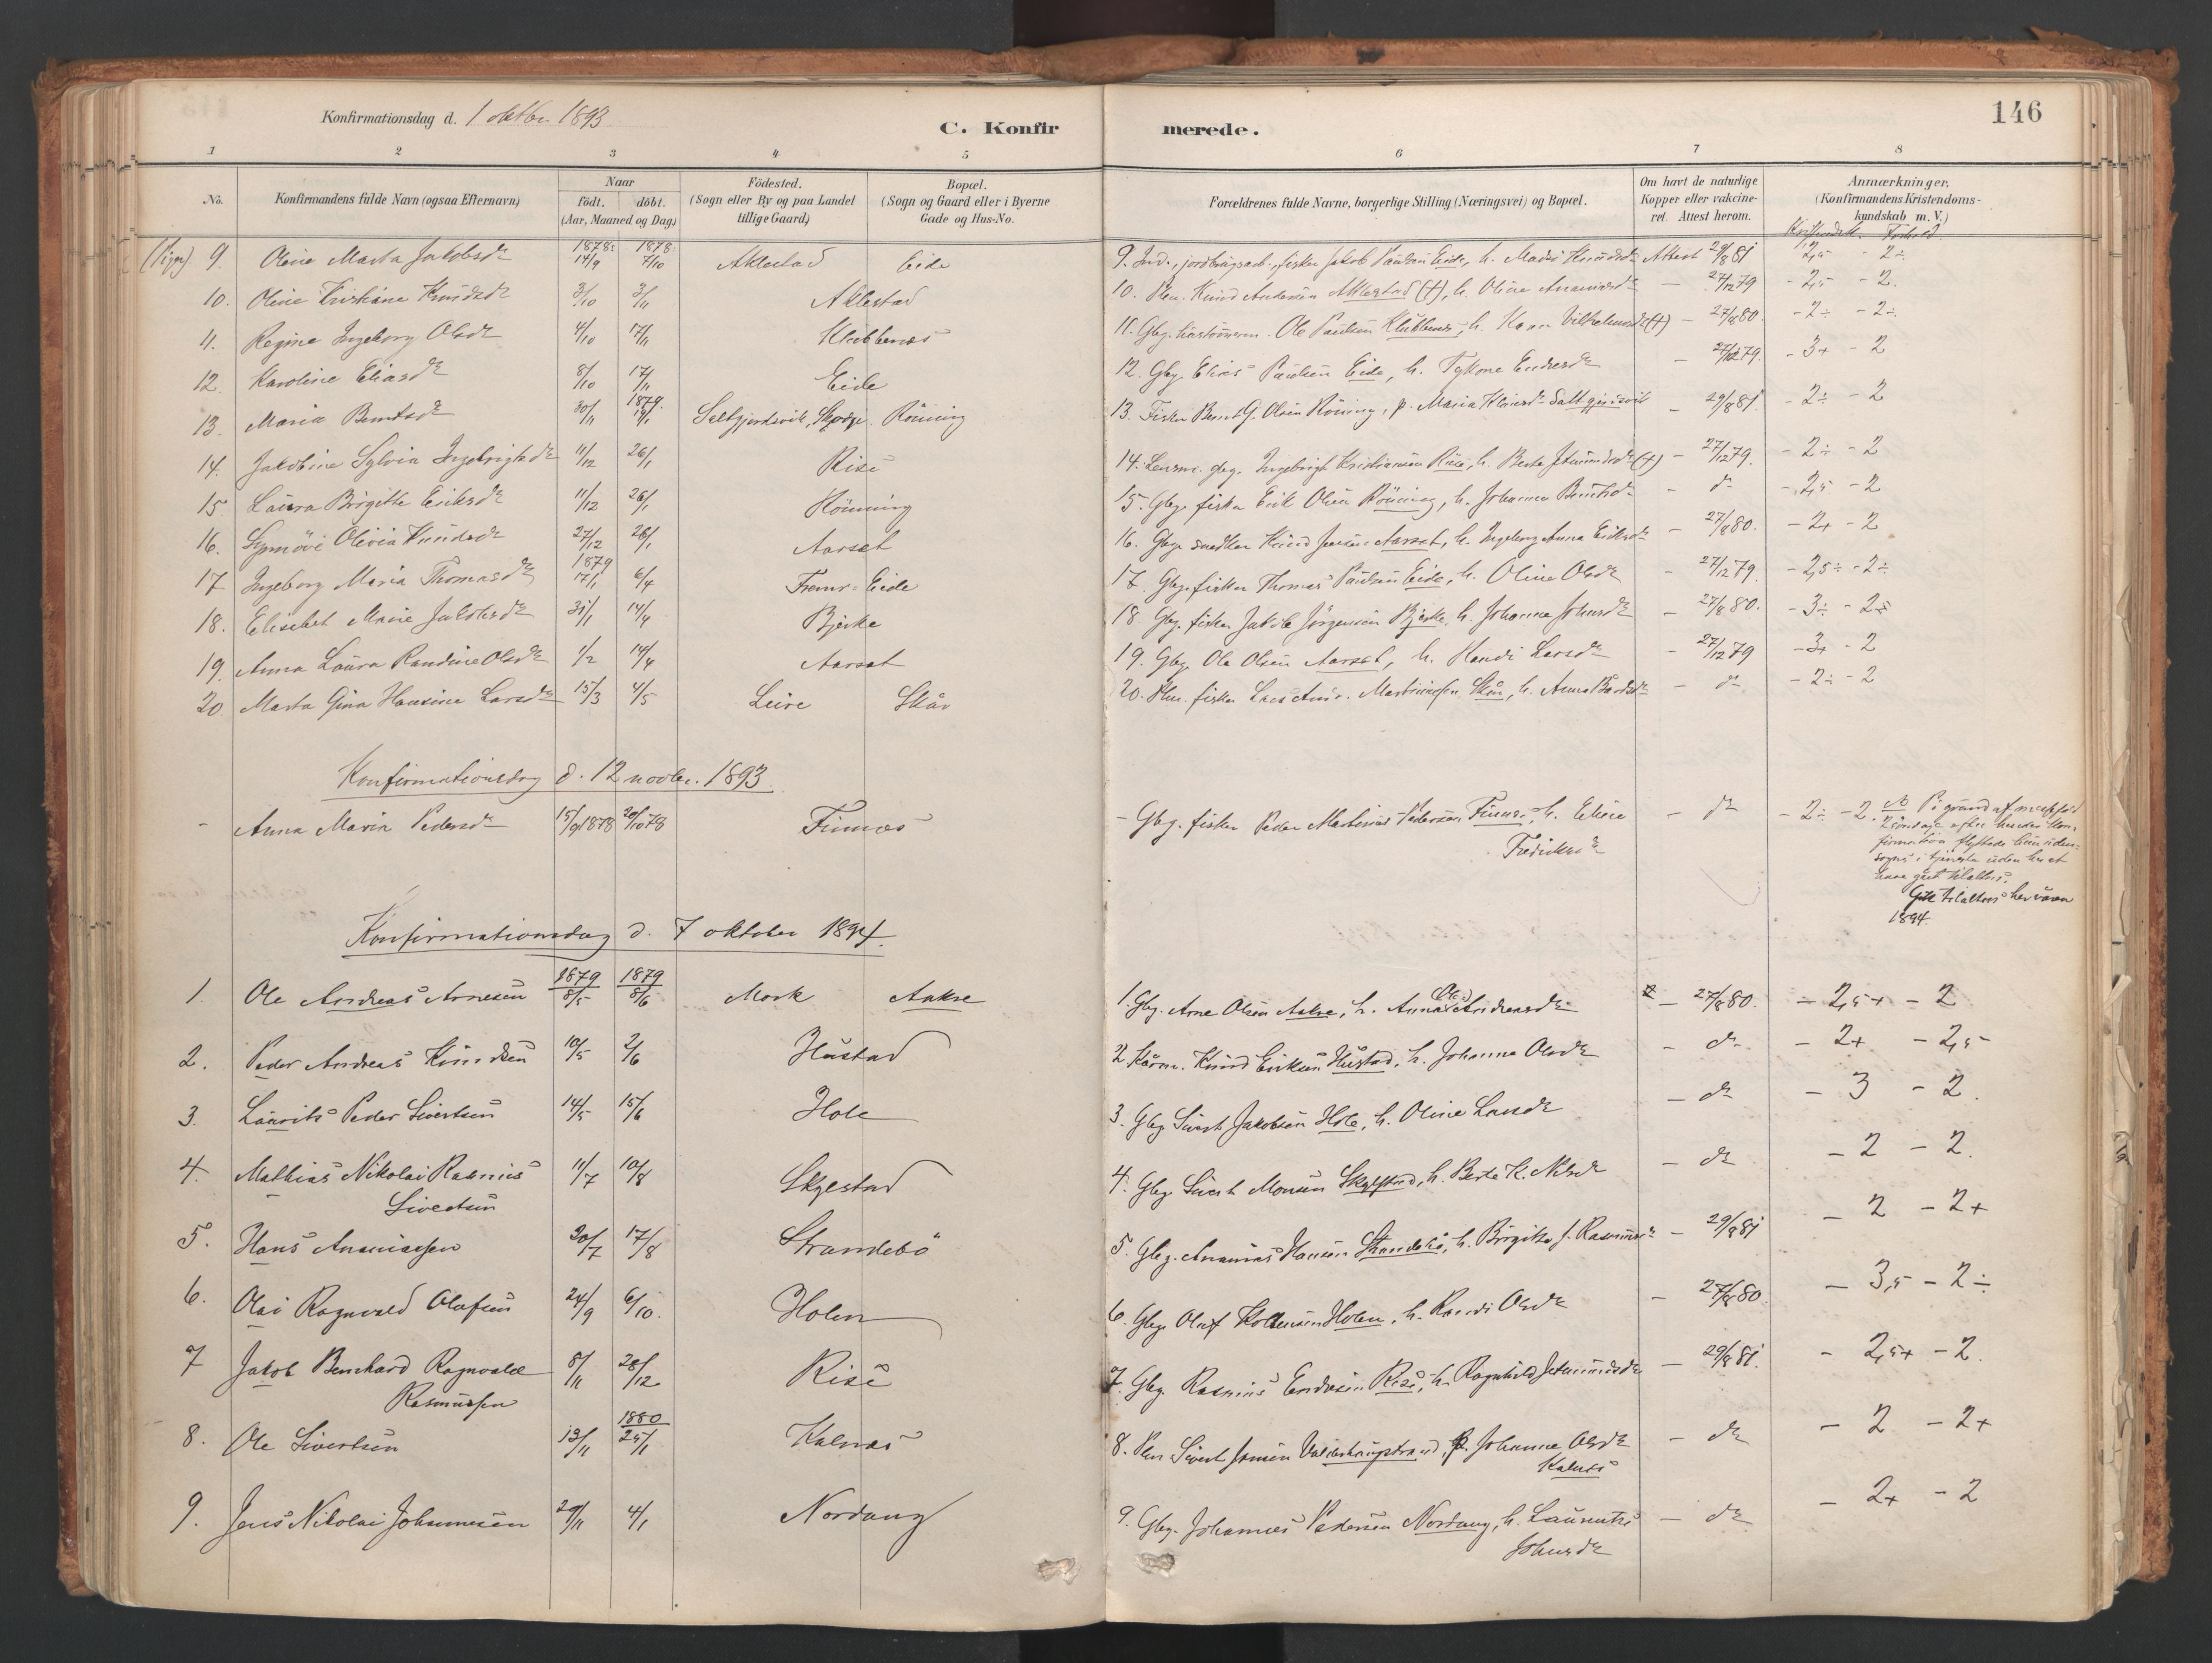 146
Konfirmationsdag d. 1 oktbr. 1893
C. Konfirmerede.
1 2 3 4 5 6 7 8
No. Konfirmandens fulde Navn (ogsaa Efternavn) Naar födt. döbt. (Aar, Maaned og Dag) Födested. (Sogn eller By og paa Landet tillige Gaard) Bopæl. (Sogn og Gaard eller i Byerne Gade og Hus-No. Forældrenes fulde Navne, borgerlige Stilling (Næringsvei) og Bopæl. Om havt de naturlige Kopper eller vakcineret. Attest herom. Anmærkninger. (Konfirmandens Kristendomskundskab m. V.)
Kristendk. Forhold
(Piger) 9. Oline Marta Jakobsdr 1878: 14/9 1878: 7/10 Aklestad Eide 9. Ind., jordbrugsarb., fisker Jakob Paulsen Eide, h. Knudsdr Attest 29/8 81 - 2,5 - 2÷
10. Oline Kristiane Knudsdr 3/10 3/11 Aklestad 10. Knud Andersen Aklestad (†), h. Oline - 27/12 79 - 2,5 - 2.
11. Regine Ingeborg Olsdr 4/10 17/11 Klubbenæs 11. Gbg. Ole Paulsen Klubbenæs, h. Vilhelmsdr (†) - 27/8 80. - 2÷ - 2÷
12. Karoline Eliasdr 8/10 17/11 Eide 12. Gbg. Elias Paulsen Eide, h. - 27/12 79. - 3+ - 2
13. Maria Berntsdr 30/11 1879. 19/1 Rönning 13. Fisker Bernt G. Olsen Rönning, p. Maria - 29/8 81 - 2÷ - 2
14. Jakobine Sylvia Ingebrigtsdr 11/12 26/1 Rise 14. Lensm. gbg. Ingebrigt Kristiansen Rise, h. (†) - 27/12 79. - 2÷ - 2
15. Laura Birgitte Eriksdr 11/12 26/1 Rönning 15. Gbg. fisker Erik Olsen Rönning, h. Johanne - do - 2,5 - 2
16. Synnöve Olivia Knudsdr 27/12 26/1 Aarset 16. Gbg. snedker Knud Jensen Aarset, h. Ingeborg Anna - 27/8 80. - 2+ - 2
17 Ingeborg Maria Thomasdr 1879 17/1 6/4 Fremr-Eide 17. Gbg. fisker Thomas Paulsen Eide, h. Oline Olsdr - 27/12 79. - 2,5÷ - 2÷
18. Elisabet Marie Jakobsdr 31/1 14/4 Bjerke 18. Gbg. fisker Jakob Jörgensen Bjerke, h. Johanne Johnsdr - 27/8 80. - 3÷ - 2,5
19. Anna Laura Randine Olsdr 1/2 14/4 Aarset 19. Gbg. Ole Olsen Aarset, h. Randi Larsdr - 27/12 79 - 3+ - 2
20. Marta Gina Hansine Larsdr 15/3 4/5 Leire Skår 20. fisker Lars Martinussen Skår, h. Anna Bårdsdr - do - 2÷ - 2
Konfirmationsdag d. 12 novbr. 1893.
- Anna Maria Pedersdr 15/9 1878 20/10 78 Finnes - Gbg. fisker Peder Martinus Pedersen Finnes, h. Eline - do - 2÷ - 2.
Fredriksdr
Gik tilalters her våren
1894.
Konfirmationsdag d. 7 oktober 1894.
1. Ole Andreas Arnesen 1879 8/5 1879 8/6 Mork Aakre 1. Gbg. Arne Olsen Aakre, h. Anna (Ols) Andreasdr - 27/8 80. - 2,5+ - 2
2. Peder Andreas Knudsen 10/5 2/6 Hustad 2. Kårm. Knud Eriksen Hustad, h. Johanne Olsdr - do - 2+ - 2,5
3. Laurits Peder Sivertsen 14/5 15/6 Hole 3. Gbg. Sivert Jakobsen Hole, h. Oline Larsdr - do - 3 - 2.
4. Mathias Nikolai Rasmus 11/7 10/8 Skjelstad 4. Gbg. Sivert Monsen Skjelstad, h. Berte K. Nilsdr - do - 2 - 2.
Sivertsen
5. Hans Ananiassen 20/7 17/8 Strandebö 5. Gbg. Ananias Hansen Strandebö, h. Birgitte J. Rasmusdr - 29/8 81 - 2 - 2+
6. Olai Ragnvald Olafsen 24/9 6/10. Holen 6. Gbg. Olaf Holen, h. Randi Olsdr - 27/8 80. - 3,5 - 2÷
7 Jakob Bernhard Ragnvald 8/11 28/12 Rise 7. Gbg. Rasmus Endresen Rise, h. Ragnhild Jetmundsdr - 29/8 81. - 2,5+ - 2.
Rasmussen
8. Ole Sivertsen 13/11 1880 25/1 Kalnæs 8. Sivert Jonsen Valderhaugstrand, p. Johanne Olsdr - do - 2 - 2+
Kalnæs
9. Jens Nikolai Johannesen 29/11 4/1 Nordang 9. Gbg. Johannes Pedersen Nordang, h. Laurentse - do - 2+ - 2
Johnsdr